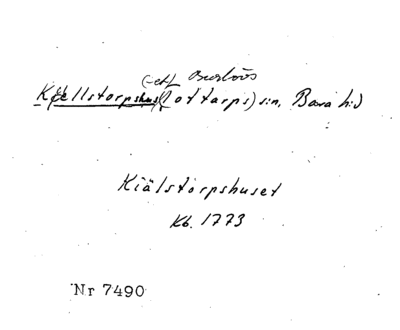 (-et)
Kjellstorpshus (Lottarps) sn, Bara hd
Kiälstorpshuset
Kb. 1773
Nr 7490